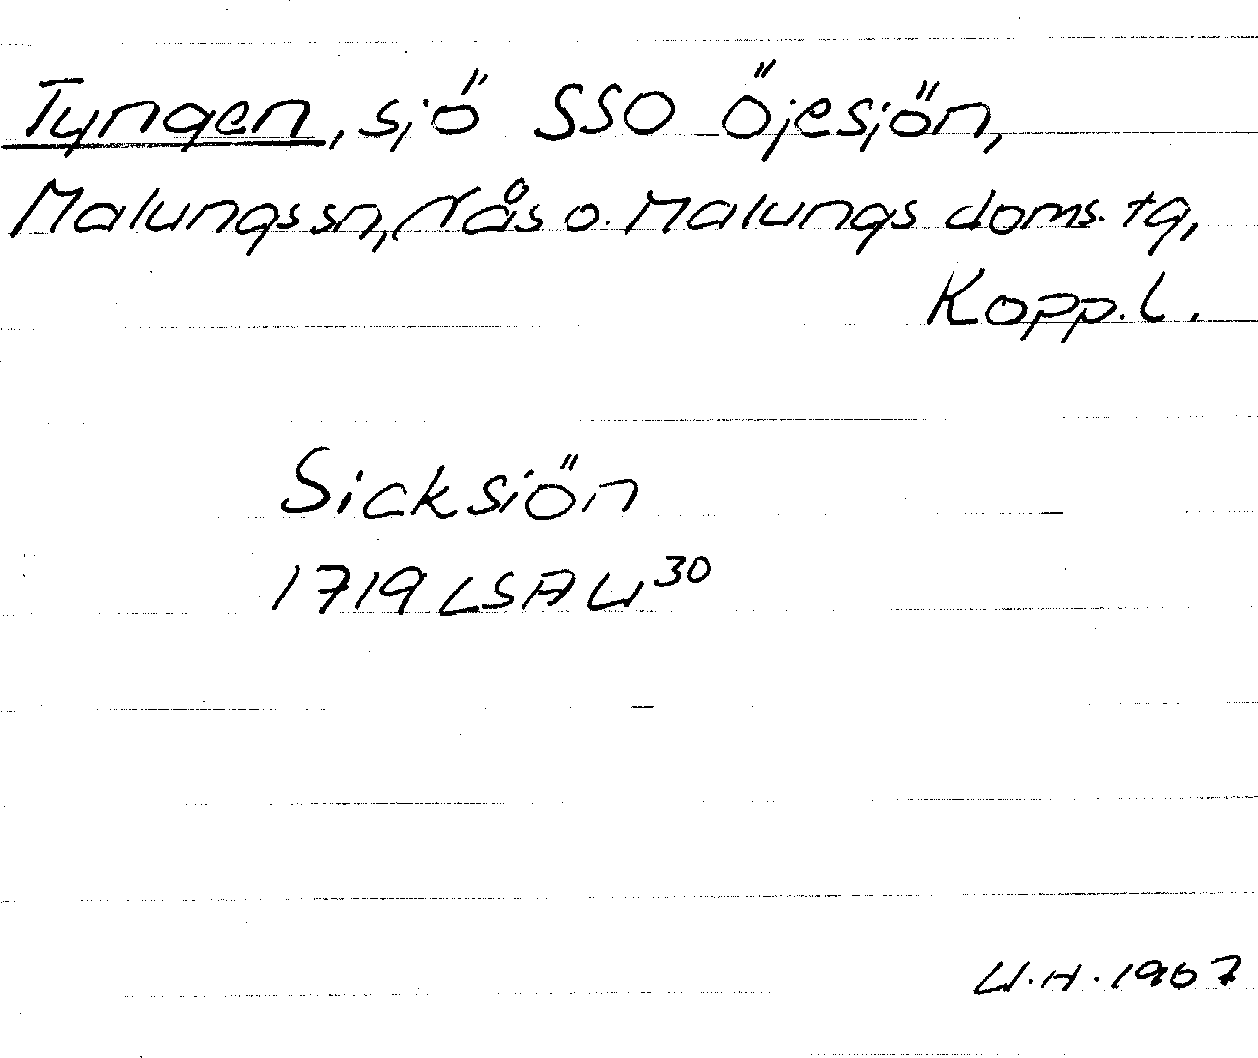 Tyngen, sjö SSO Öjesjön,
Malungs sn, Nås o. Malungs doms. tg,
Kopp. l.
Sicksiön
1719 LSA U³⁰
U.H. 1967